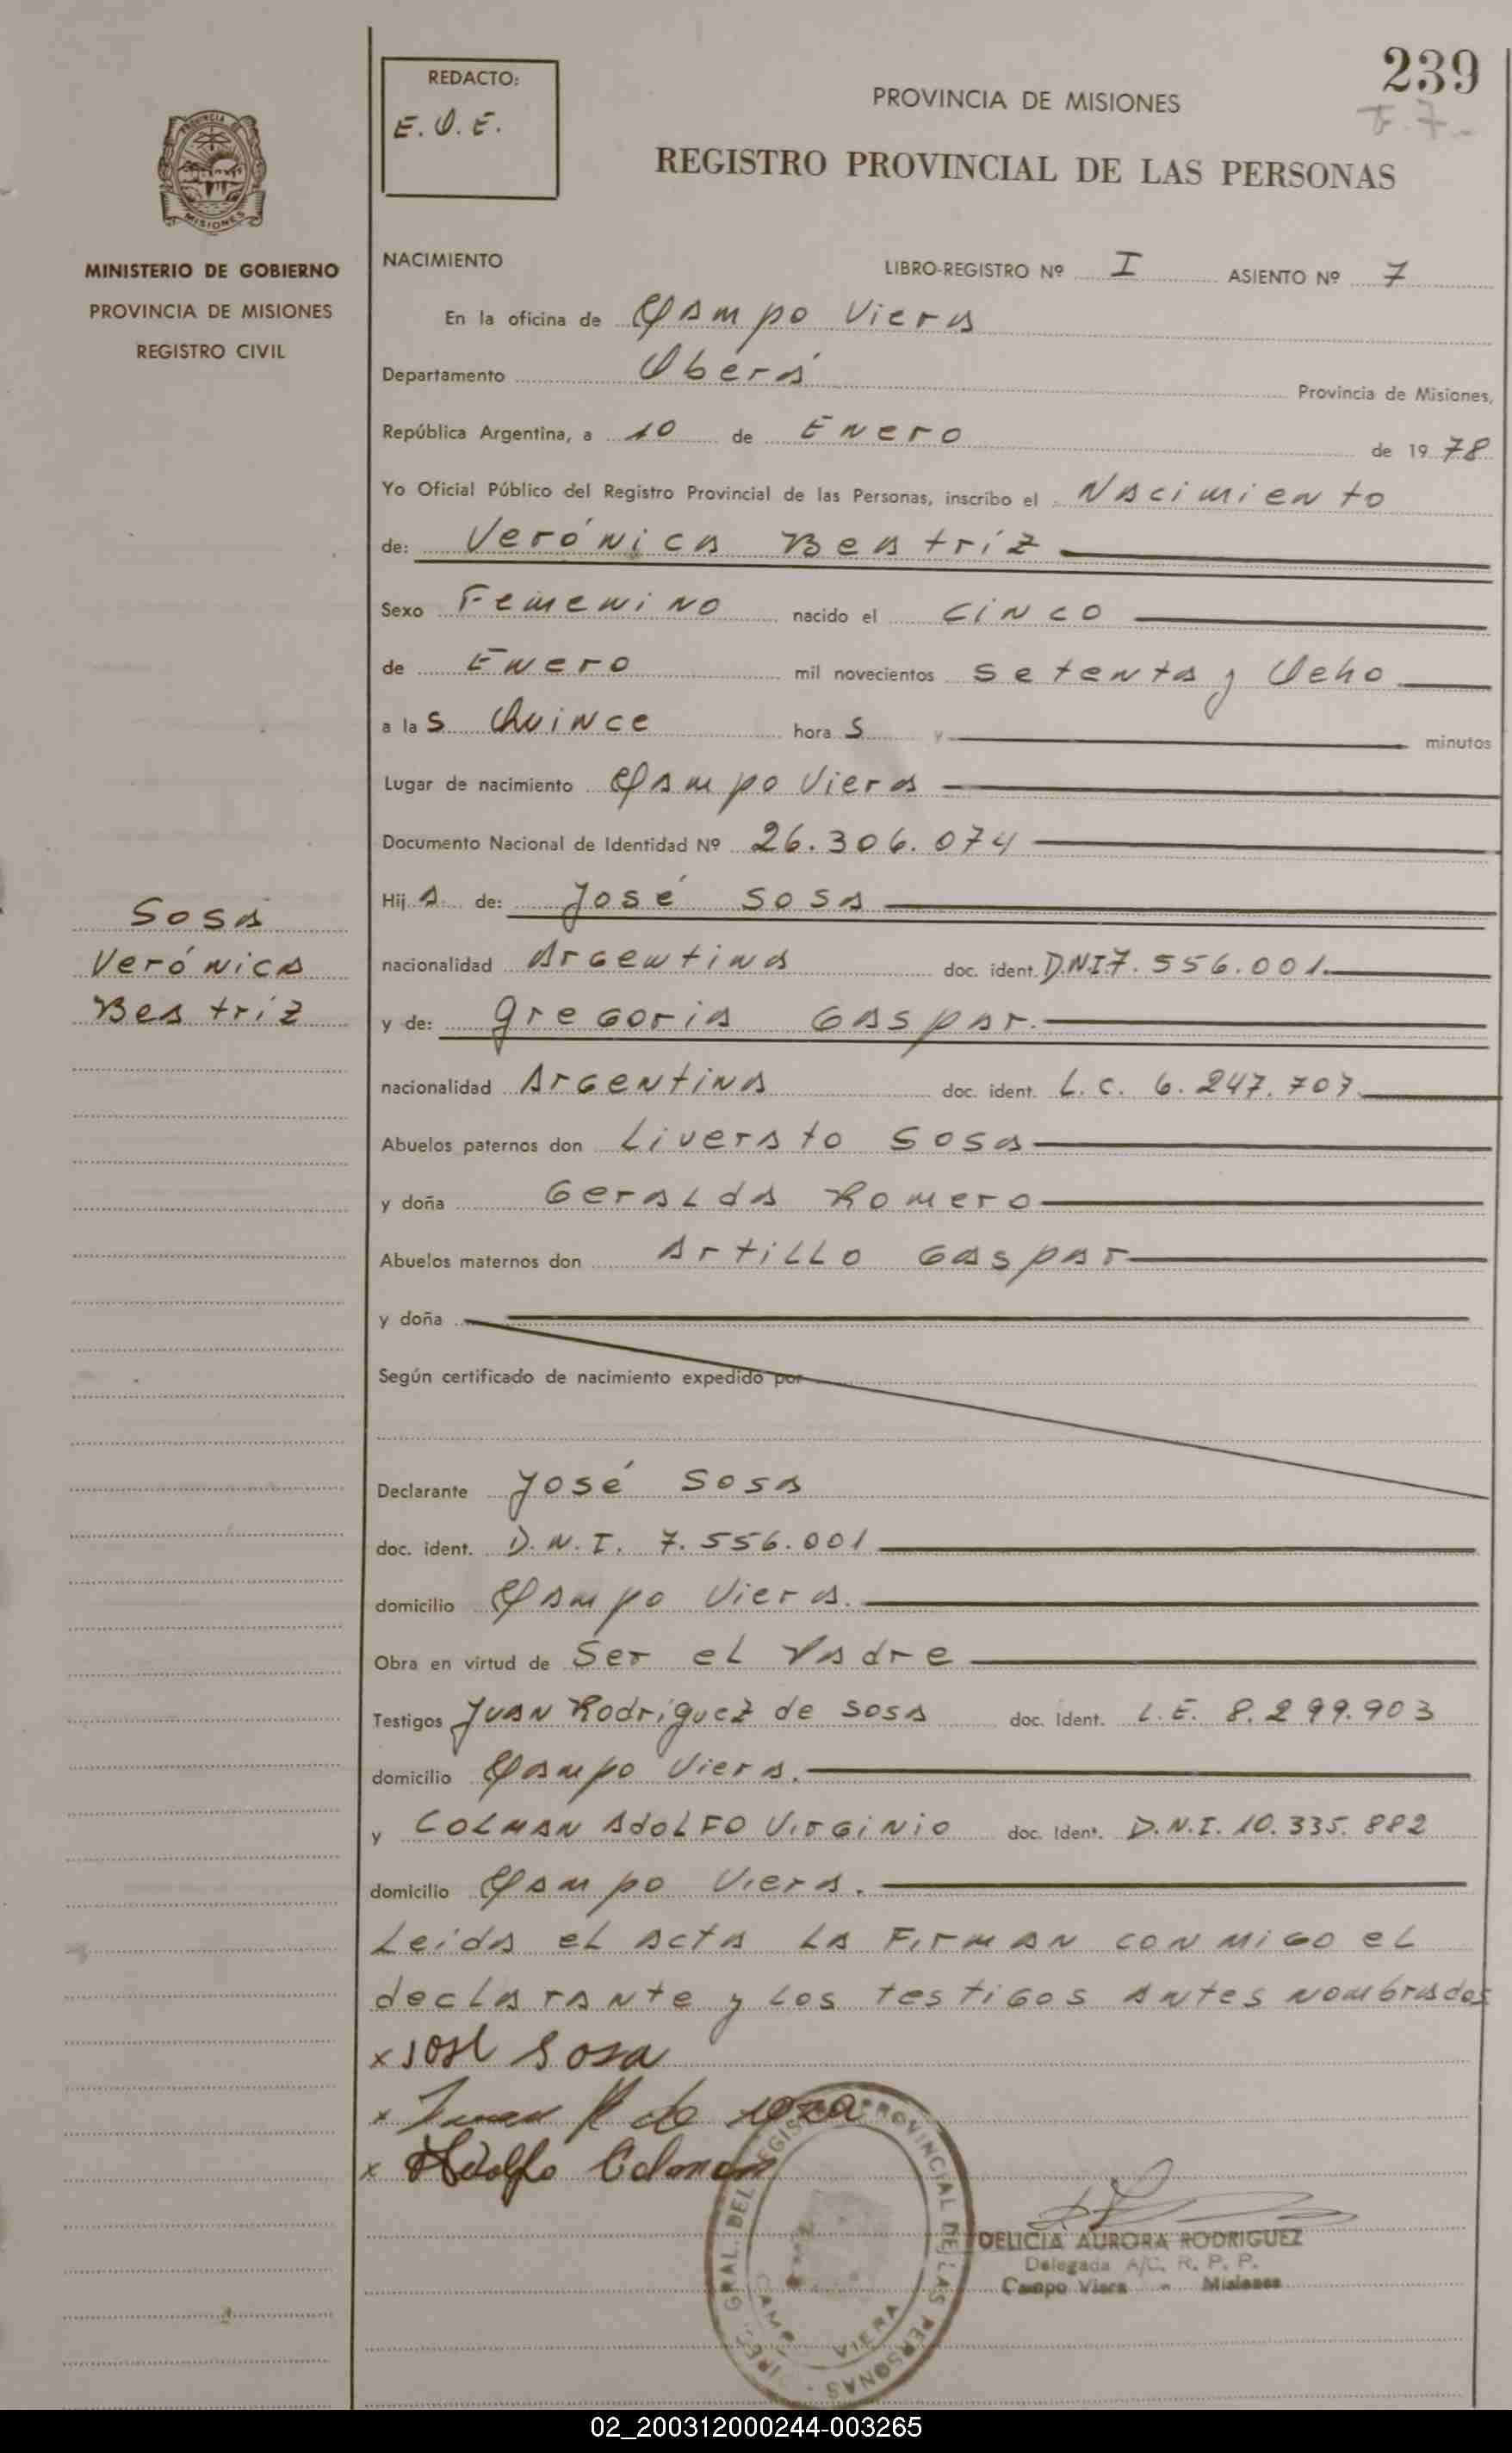 239
F. 7.-
REDACTO:
E. O. E.
PROVINCIA DE MISIONES
REGISTRO PROVINCIAL DE LAS PERSONAS
PROVINCIA
MISIONES
MINISTERIO DE GOBIERNO
PROVINCIA DE MISIONES
REGISTRO CIVIL
NACIMIENTO
LIBRO-REGISTRO Nº I ASIENTO Nº 7
En la oficina de Campo Viera
Departamento Oberá Provincia de Misiones,
República Argentina, a 10 de Enero de 1978
Yo Oficial Público del Registro Provincial de las Personas, inscribo el Nacimiento
de: Verónica Beatríz
Sexo Femenino nacido el cinco
de Enero mil novecientos setenta y Ocho
a las Quince horas y minutos
Lugar de nacimiento Campo Viera
Documento Nacional de Identidad Nº 26.306.074
Hija de: José Sosa
nacionalidad Argentina doc. ident. D.N.I 7.556.001.
y de: Gregoria Gaspar.
nacionalidad Argentina doc. ident. L.C. 6.247.707.
Abuelos paternos don Liverato Sosa
y doña Geralda Romero
Abuelos maternos don Artillo Gaspar
y doña
Según certificado de nacimiento expedido por
Sosa
Verónica
Beatríz
Declarante José Sosa
doc. ident. D.N.I. 7.556.001
domicilio Campo Viera.
Obra en virtud de Ser el Padre
Testigos Juan Rodríguez de Sosa doc. Ident. L.E. 8.299.903
domicilio Campo Viera.
y COLMAN Adolfo Virginio doc. Ident. D.N.I. 10.335.882
domicilio Campo Viera.
Leida el acta la Firman conmigo el
declarante y los testigos antes nombrados
x José Sosa
x Juan R de soza
x Adolfo Colman
GRAL. DEL REGISTRO PROVINCIAL DE LAS PERSONAS
CAMPO VIERA
DELICIA AURORA RODRIGUEZ
Delegada A/C. R. P. P.
Campo Viera - Misiones
02_200312000244-003265